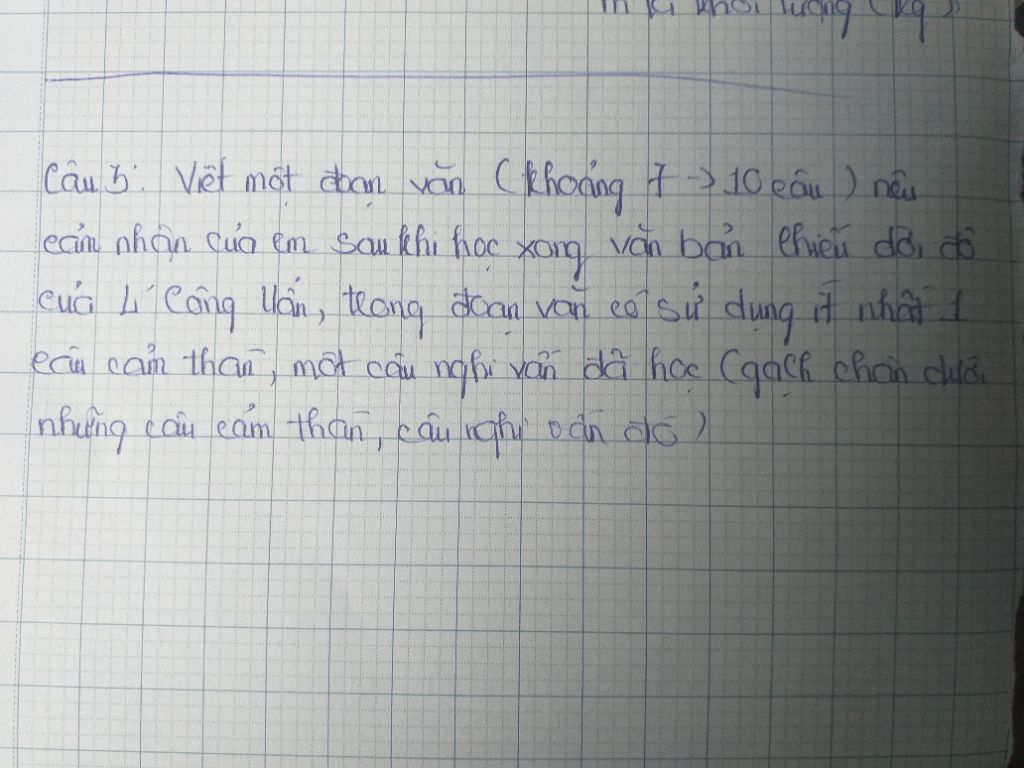 m là khối lượng (kg)
Câu 5: Viết một đoạn văn (khoảng 7 -> 10 câu) nêu
cảm nhận của em sau khi học xong văn bản Chiếu dời đô
của Lí Công Uẩn, trong đoạn văn có sử dụng ít nhất 1
câu cảm thán, một câu nghi vấn đã học (gạch chân dưới
những câu cảm thán, câu nghi vấn đó)